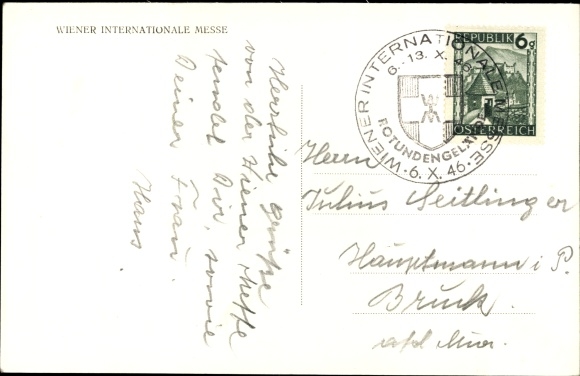 WIENER INTERNATIONALE MESSE
Herzliche Grüße
von der Wiener Messe
sendet Dir, sowie
Deiner Frau
Hans.
WIENER INTERNATIONALE MESSE
6.-13. X. 46
ROTUNDENGELÄNDE
6. X. 46
REPUBLIK 6g
ÖSTERREICH
Herrn
Julius Seitlinger
Hauptmann i P.
Bruck.
a/d Mur.